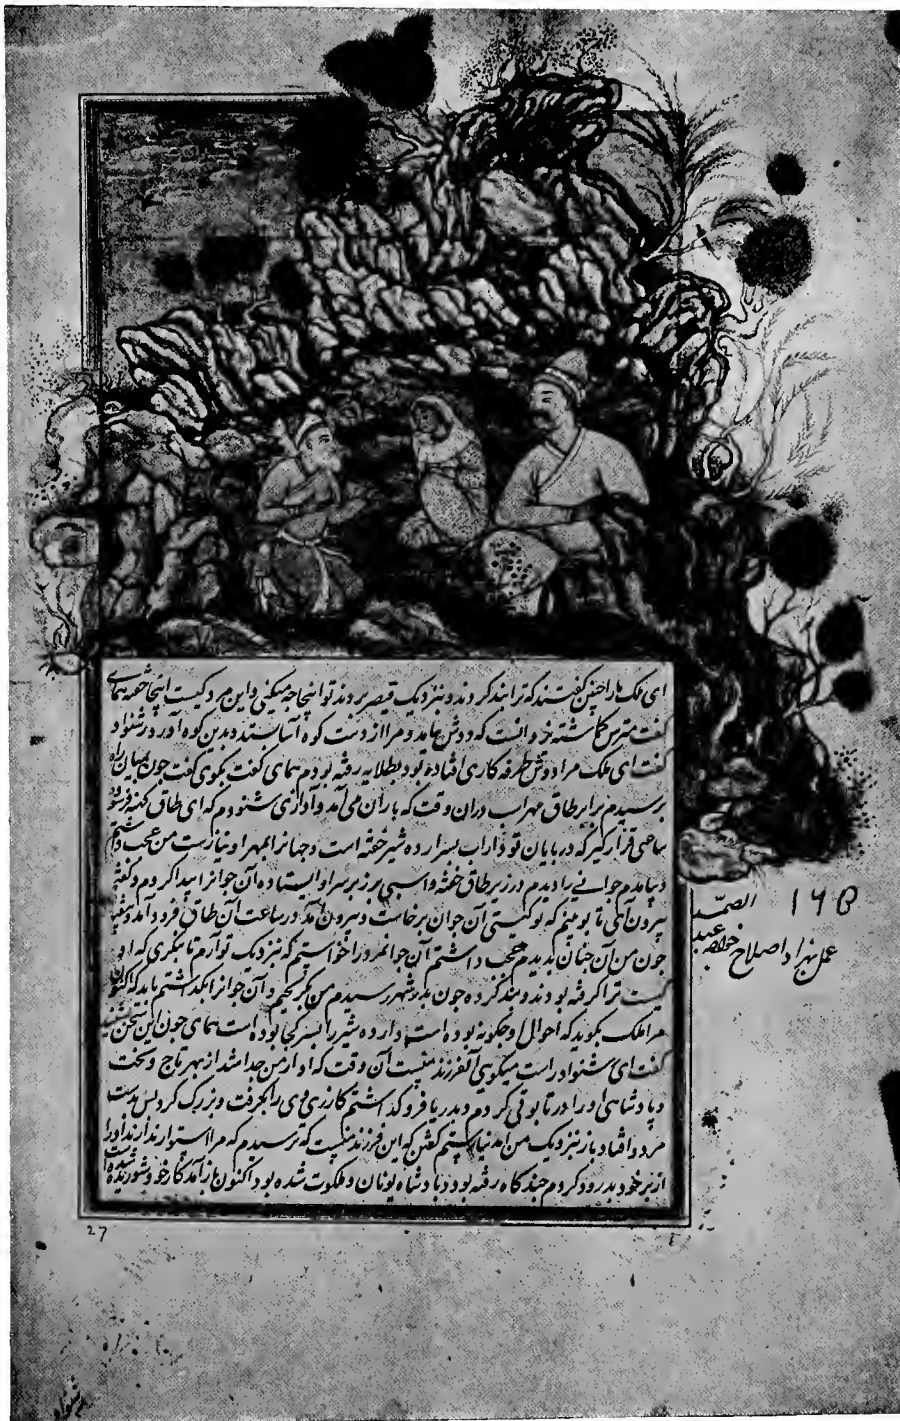 ای ملک ما را چنین گفتند که ترا بند کردند و بنزدیک قیصر بردند تو اینجا چه میکنی و این مرد کیست اینجا خفته همای
گفت مترس که دوش بیامد و مرا از دست بستد و بدین کوه آورد رشنواد
گفت ای ملک مرا دوش طرفه کاری افتاده بود بطلایه رفته بودم همای گفت بگوی گفت چون بمیان راه
برسیدم برابر طاق مهراب دران وقت که باران می آمد و آوازی شنودم که ای طاق کهنه فرسوده
ساعتی قرار گیر که در پایان تو داراب بسر ارده شیر خفته است و جهانرا بمهر او نیازست من عجب داشتم
و بیامدم جوانی را دیدم در زیر طاق خفته و اسبی بر زبر سر او ایستاده آن جوانرا بیدا کردم و گفتم
بیرون آی تا بوبینم که تو کیستی آن جوان برخاست و بیرون آمد در ساعت آن طاق فرود آمد و
چون من آن چنان بدیدم عجب داشتم آن جوانمرد را خواستم که بنزدیک تو آرم تا بنگری که او
کیست ترا گرفته بودند و بند کرده چون بدر شهر رسیدم من و آن جوانرا بگذاشتم باید که اکنون
مرا ملک بگوید که احوال او چگونه بوده است و ارده شیر را بسر کجا بوده است همای چون این سخن شنید
گفت ای رشنواد راست میگویی آن فرزند منست آن وقت که او از من جدا شد از بهر تاج و تخت
و پادشاهی او را در تابوتی کردم و بدریا فرو گذاشتم گازری وی را بگرفت و بزرگ کرد بس بدست
مرد و افتاد باز نزدیک من آمد نیارستم گفتن که این فرزند منست که ترسیدم که مرا استوار ندارند او را
از بر خود بدرود کردم چند گاه رفته بود و پادشاه یونان و ملکوت شده بود اکنون باز آمد کار خود شوریده
الصمد ۱۶۵
عمل بهزاد اصلاح خواجه عبد
27
رشنواد